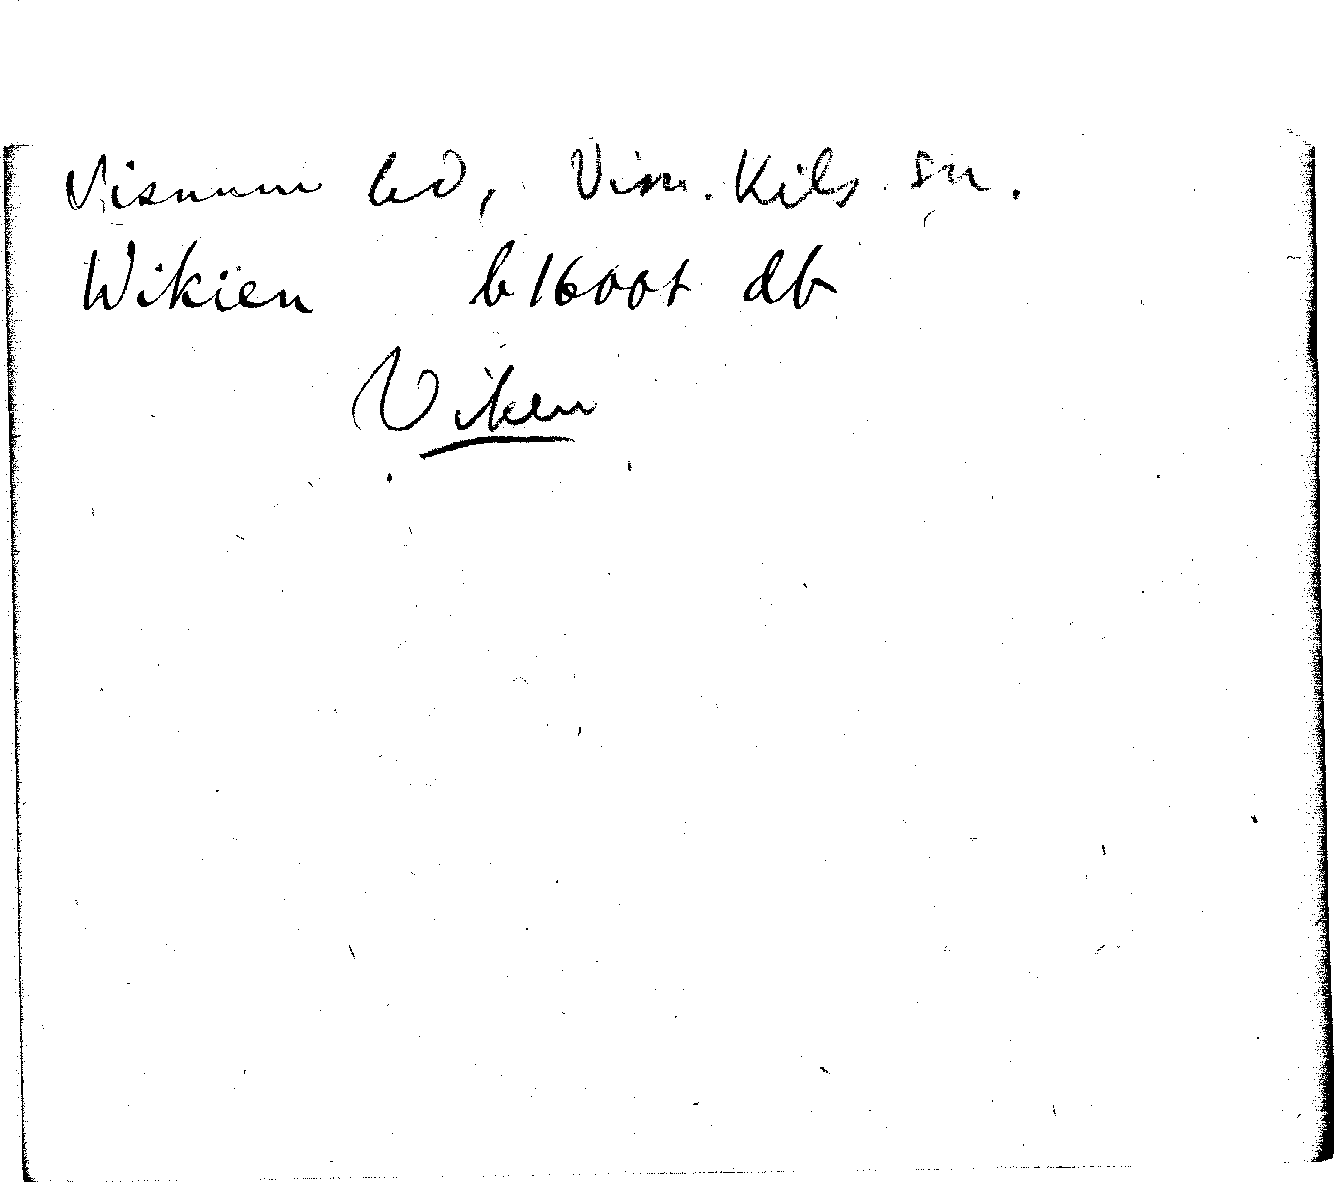 Visnum hd, Visn. Kils sn.
Wikïen b1600t db
Viken